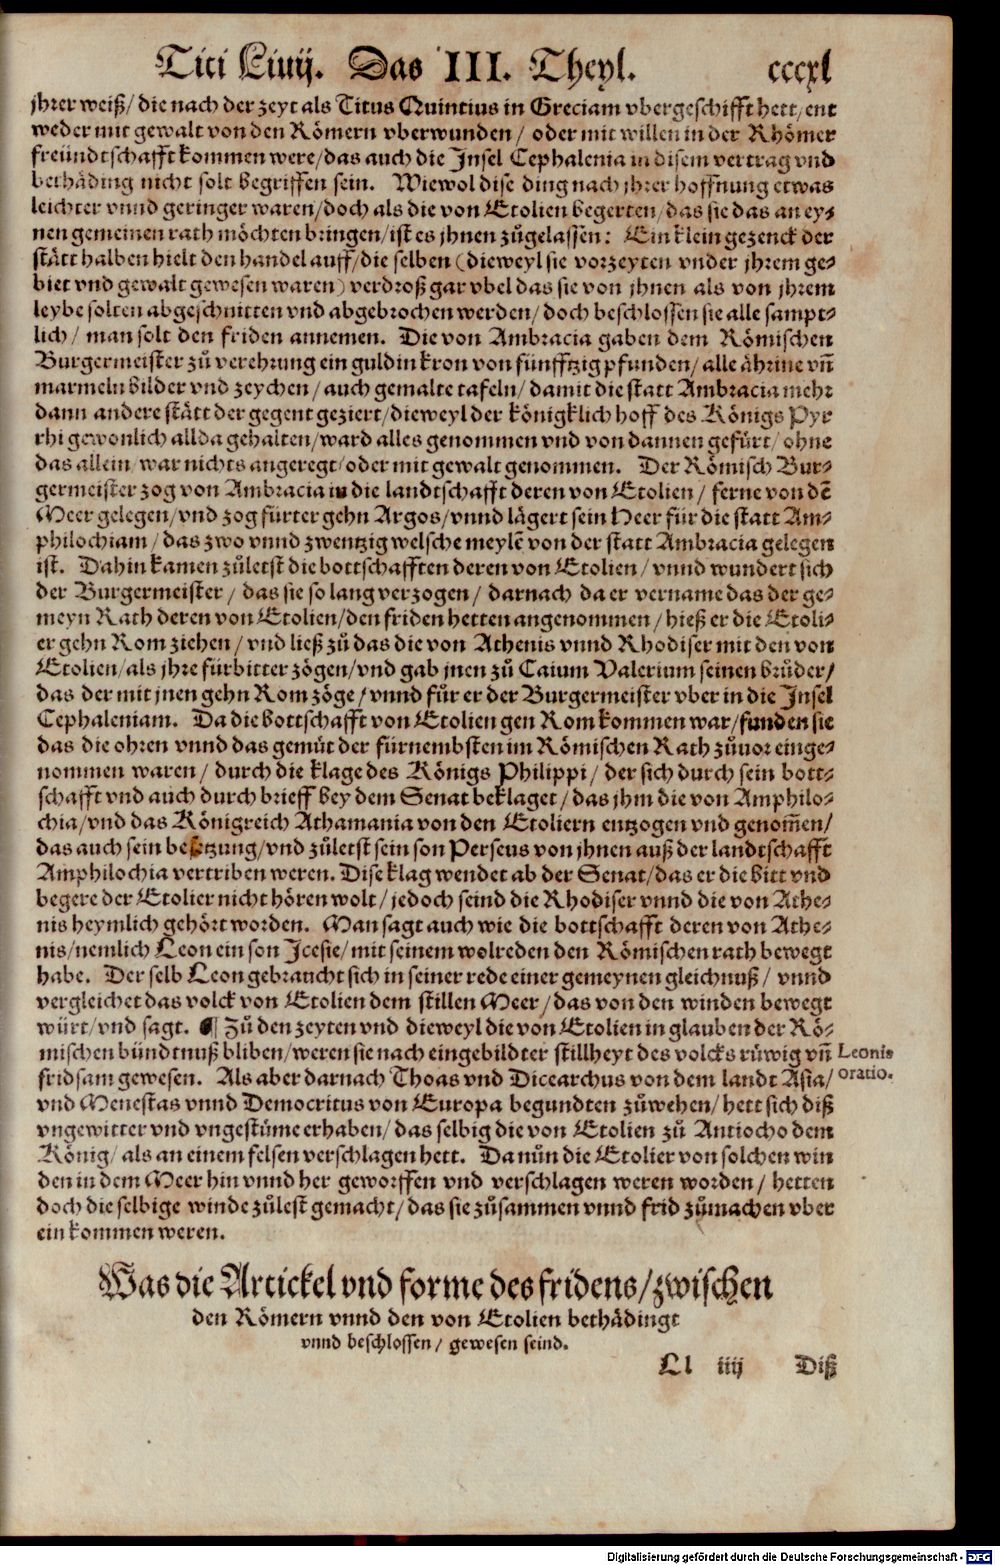 Titi Liuij. Das III. Theyl. cccxl
jhrer weiß/ die nach der zeyt als Titus Quintius in Greciam vbergeschifft hett/ ent
weder mit gewalt von den Römern vberwunden/ oder mit willen in der Rhömer
freündtschafft kommen were/ das auch die Insel Cephalenia in disem vertrag vnd
bethäding nicht solt begriffen sein. Wiewol dise ding nach jhrer hoffnung etwas
leichter vnnd geringer waren/ doch als die von Etolien begerten/ das sie das an ey⸗
nen gemeinen rath möchten bringen/ ist es jhnen zůgelassen: Ein klein gezenck der
stätt halben hielt den handel auff/ die selben (dieweyl sie vorzeyten vnder jhrem ge⸗
biet vnd gewalt gewesen waren) verdroß gar vbel das sie von jhnen als von jhrem
leybe solten abgeschnitten vnd abgebrochen werden/ doch beschlossen sie alle sampt⸗
lich/ man solt den friden annemen. Die von Ambracia gaben dem Römischen
Burgermeister zů verehrung ein guldin kron von fünfftzig pfunden/ alle ährine vñ
marmeln bilder vnd zeychen/ auch gemalte tafeln/ damit die statt Ambracia mehr
dann andere stätt der gegent geziert/ dieweyl der königklich hoff des Königs Pyr
rhi gewonlich allda gehalten/ ward alles genommen vnd von dannen gefürt/ ohne
das allein/ war nichts angeregt/ oder mit gewalt genommen. Der Römisch Bur⸗
germeister zog von Ambracia in die landtschafft deren von Etolien/ ferne von dē
Meer gelegen/ vnd zog fürter gehn Argos/ vnnd lägert sein Heer für die statt Am⸗
philochiam/ das zwo vnnd zwentzig welsche meylē von der statt Ambracia gelegen
ist. Dahin kamen zůletst die bottschafften deren von Etolien/ vnnd wundert sich
der Burgermeister/ das sie so lang verzogen/ darnach da er vername das der ge⸗
meyn Rath deren von Etolien/ den friden hetten angenommen/ hieß er die Etoli⸗
er gehn Rom ziehen/ vnd ließ zů das die von Athenis vnnd Rhodiser mit den von
Etolien/ als jhre fürbitter zögen/ vnd gab jnen zů Caium Valerium seinen brůder/
das der mit jnen gehn Rom zöge/ vnnd für er der Burgermeister vber in die Insel
Cephaleniam. Da die bottschafft von Etolien gen Rom kommen war/ funden sie
das die ohren vnnd das gemüt der fürnembsten im Römischen Rath zůuor einge⸗
nommen waren/ durch die klage des Königs Philippi/ der sich durch sein bott⸗
schafft vnd auch durch brieff bey dem Senat beklaget/ das jhm die von Amphilo⸗
chia/ vnd das Königreich Athamania von den Etoliern entzogen vnd genom̃en/
das auch sein besetzung/ vnd zůletst sein son Perseus von jhnen auß der landtschafft
Amphilochia vertriben weren. Dise klag wendet ab der Senat/ das er die bitt vnd
begere der Etolier nicht hören wolt/ jedoch seind die Rhodiser vnnd die von Athe⸗
nis heymlich gehört worden. Man sagt auch wie die bottschafft deren von Athe⸗
nis/ nemlich Leon ein son Icesie/ mit seinem wolreden den Römischen rath bewegt
habe. Der selb Leon gebraucht sich in seiner rede einer gemeynen gleichnuß/ vnnd
vergleichet das volck von Etolien dem stillen Meer/ das von den winden bewegt
würt/ vnd sagt. ¶ Zů den zeyten vnd dieweyl die von Etolien in glauben der Rö⸗
mischen bündtnuß bliben/ weren sie nach eingebildter stillheyt des volcks rüwig vñ
fridsam gewesen. Als aber darnach Thoas vnd Dicearchus von dem landt Asia/
vnd Menestas vnnd Democritus von Europa begundten zůwehen/ hett sich diß
vngewitter vnd vngestüme erhaben/ das selbig die von Etolien zů Antiocho dem
König/ als an einem felsen verschlagen hett. Da nůn die Etolier von solchen win
den in dem Meer hin vnnd her geworffen vnd verschlagen weren worden/ hetten
doch die selbige winde zůlest gemacht/ das sie zůsammen vnnd frid zůmachen vber
ein kommen weren.
Leonis
oratio.
Was die Artickel vnd forme des fridens/ zwischen
den Römern vnnd den von Etolien bethädingt
vnnd beschlossen/ gewesen seind.
Ll iiij Diß
Digitalisierung gefördert durch die Deutsche Forschungsgemeinschaft - DFG